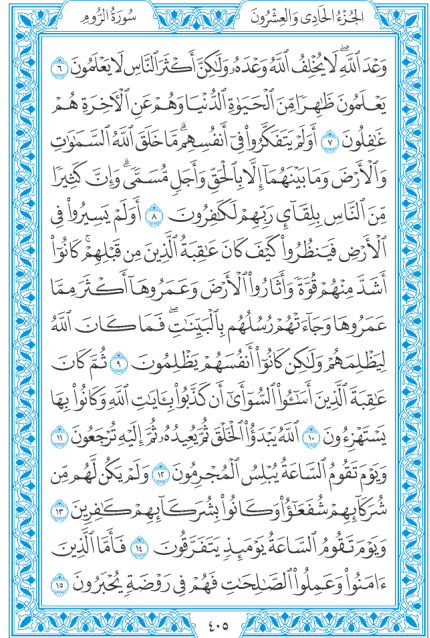 الجُزْءُ الحَادِي وَالعِشْرُونَ
سُورَةُ الرُّومِ
وَعْدَ ٱللَّهِۖ لَا يُخْلِفُ ٱللَّهُ وَعْدَهُۥ وَلَٰكِنَّ أَكْثَرَ ٱلنَّاسِ لَا يَعْلَمُونَ ٦
يَعْلَمُونَ ظَٰهِرًا مِّنَ ٱلْحَيَوٰةِ ٱلدُّنْيَا وَهُمْ عَنِ ٱلْءَاخِرَةِ هُمْ
غَٰفِلُونَ ٧ أَوَلَمْ يَتَفَكَّرُوا۟ فِىٓ أَنفُسِهِمۗ مَّا خَلَقَ ٱللَّهُ ٱلسَّمَٰوَٰتِ
وَٱلْأَرْضَ وَمَا بَيْنَهُمَآ إِلَّا بِٱلْحَقِّ وَأَجَلٍ مُّسَمًّىۗ وَإِنَّ كَثِيرًا
مِّنَ ٱلنَّاسِ بِلِقَآئِ رَبِّهِمْ لَكَٰفِرُونَ ٨ أَوَلَمْ يَسِيرُوا۟ فِى
ٱلْأَرْضِ فَيَنظُرُوا۟ كَيْفَ كَانَ عَٰقِبَةُ ٱلَّذِينَ مِن قَبْلِهِمْۚ كَانُوٓا۟
أَشَدَّ مِنْهُمْ قُوَّةً وَأَثَارُوا۟ ٱلْأَرْضَ وَعَمَرُوهَآ أَكْثَرَ مِمَّا
عَمَرُوهَا وَجَآءَتْهُمْ رُسُلُهُم بِٱلْبَيِّنَٰتِۖ فَمَا كَانَ ٱللَّهُ
لِيَظْلِمَهُمْ وَلَٰكِن كَانُوٓا۟ أَنفُسَهُمْ يَظْلِمُونَ ٩ ثُمَّ كَانَ
عَٰقِبَةَ ٱلَّذِينَ أَسَٰٓـُٔوا۟ ٱلسُّوٓأَىٰٓ أَن كَذَّبُوا۟ بِـَٔايَٰتِ ٱللَّهِ وَكَانُوا۟ بِهَا
يَسْتَهْزِءُونَ ١٠ ٱللَّهُ يَبْدَؤُا۟ ٱلْخَلْقَ ثُمَّ يُعِيدُهُۥ ثُمَّ إِلَيْهِ تُرْجَعُونَ ١١
وَيَوْمَ تَقُومُ ٱلسَّاعَةُ يُبْلِسُ ٱلْمُجْرِمُونَ ١٢ وَلَمْ يَكُن لَّهُم مِّن
شُرَكَآئِهِمْ شُفَعَٰٓؤُا۟ وَكَانُوا۟ بِشُرَكَآئِهِمْ كَٰفِرِينَ ١٣
وَيَوْمَ تَقُومُ ٱلسَّاعَةُ يَوْمَئِذٍ يَتَفَرَّقُونَ ١٤ فَأَمَّا ٱلَّذِينَ
ءَامَنُوا۟ وَعَمِلُوا۟ ٱلصَّٰلِحَٰتِ فَهُمْ فِى رَوْضَةٍ يُحْبَرُونَ ١٥
٤٠٥